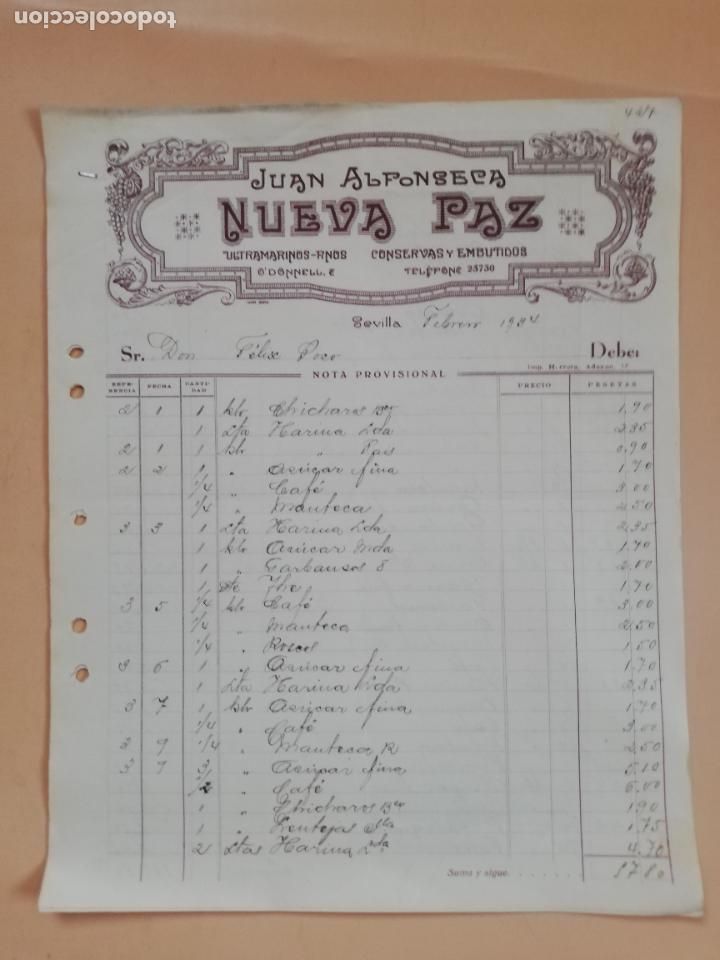 todocoleccion
427
JUAN ALFONSECA
NUEVA PAZ
ULTRAMARINOS-FINOS CONSERVAS Y EMBUTIDOS
O'DONNELL, 2 TELÉFONO 23730
Sevilla Febrero 1934
Sr. Don Félix Pozo Debe:
Imp. Herrera, Adriano
NOTA PROVISIONAL
REFERENCIA FECHA CANTIDAD PRECIO PESETAS
2 1 1 klo Chicharos Bco 1,90
1 Lta Harina Lda 2,35
2 1 1 klo " Pais 0,90
2 2 1 " Azúcar fina 1,70
1/4 " Café 3,00
1/4 " Manteca 2,50
3 3 1 Lta Harina Lda 2,35
1 klo Azúcar Mda 1,70
1 " Garbanzos 8 2,00
1 Pte The 1,70
3 5 1/4 klo Café 3,00
1/4 " Manteca 2,50
1/4 " Roscos 1,50
3 6 1 " Azúcar fina 1,70
1 Lta Harina Lda 2,35
3 7 1 klo Azúcar fina 1,70
1/4 " Café 3,00
3 9 1/4 " Manteca 12 2,50
3 9 3 " Azúcar fina 5,10
1/2 " Café 6,00
1 " Chicharos Bco 1,90
1 " Lentejas 1,75
2 Ltas Harina Lda 4,70
Suma y sigue 57,80